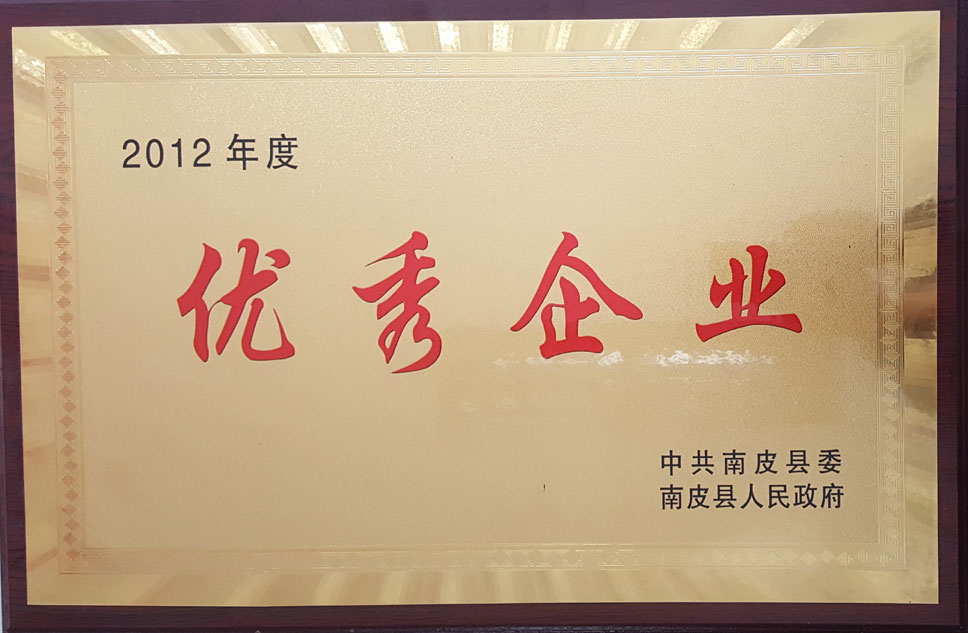 2012 年度
优秀企业
中共南皮县委
南皮县人民政府